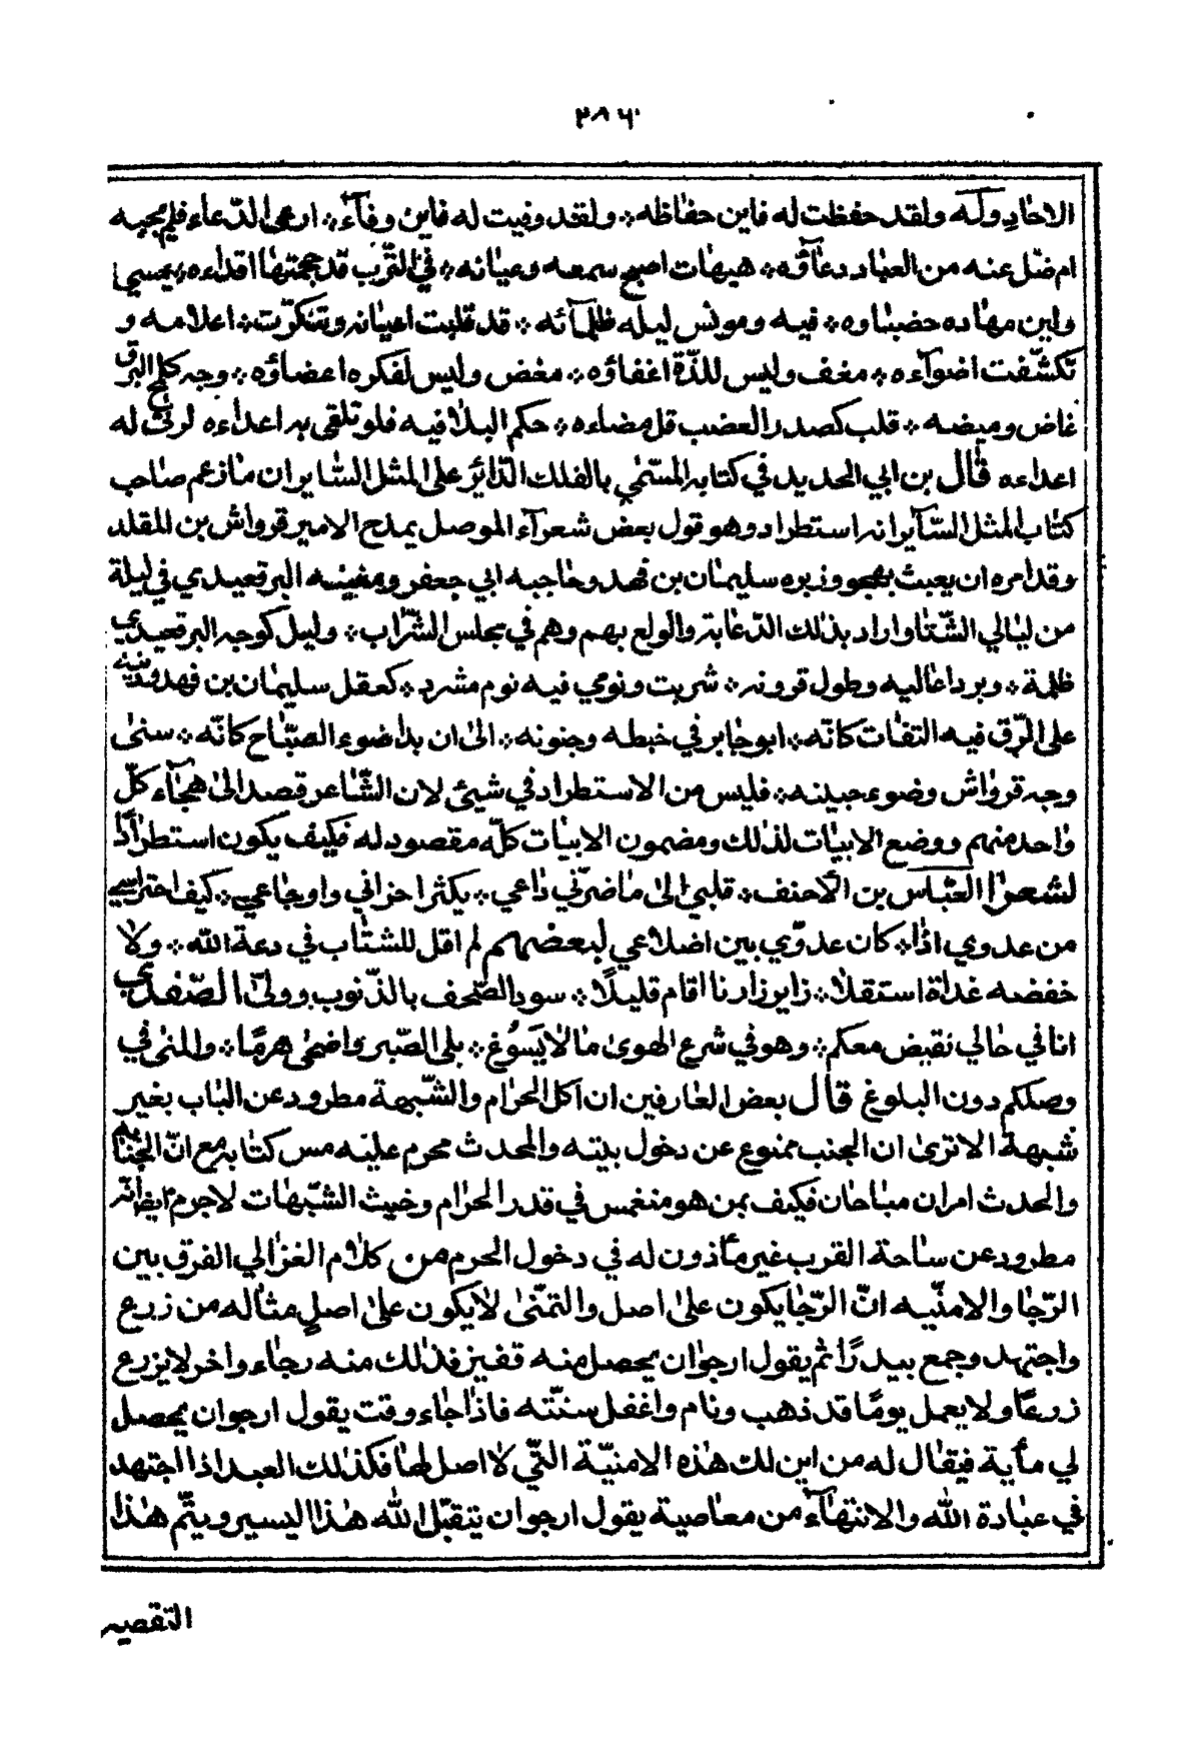 ٣٨٦
الاحاد وكه ولقد حفظت له فاين حفاظه ٭ ولقد وفيت له فاين وفآءَ ٭ ارعى الدّعاء فلم يجبه
ام ضل عنه من العباد دعآؤه ٭ هيهات اصبح سمعه وعيانه ٭ في التّرب قد حجبتها اقذاءه ٭ يمسي
ولين مهاده حصباوه ٭ فيه ومونس ليله ظلمآئه ٭ قد قلبت اعيانه وتنكرّت ٭ اعلامه و
تكشّفت اضوآءه ٭ مغف وليس للذّة اغفاؤه ٭ مغض وليس لفكره اعضاؤه ٭ وجه كلمح البرق
غاض وميضه ٭ قلب كصدر العضب فل مضاءه ٭ حكم البلا فيه فلو تلقى به اعداءه لرثى له
اعداءه قال بن ابي الحديد في كتابه المسمّى بالفلك الدّائر على المثل السّاير ان مازعم صاحب
كتاب المثل السّآير انه استطراد وهو قول بعض شعرآء الموصل يمدح الامير قرواش بن المقلد
وقد امره ان يعبث بهجو وزيره سليمان بن فهد وحاجبه ابي جعفر ومغنيه البرقعيدي في ليلة
من ليالي الشّتا واراد بذلك الدّعابة والولع بهم وهم في مجلس الشّراب ٭ وليل كوجه البرقعيدي
ظلمة ٭ وبرد اغاليه وطول قرونه ٭ شربت ونومي فيه نوم مشرد ٭ كعقل سليمان بن فهد ودينه
على الرّق فيه التفات كانّه ٭ ابو جابر في خبطه وجنونه ٭ الى ان بدا ضوء الصّباح كانّه ٭ سنى
وجه قرواش وضوء جبينه ٭ فليس من الاستطراد في شيئ لان الشّاعر قصد الى هجآء كلّ
واحد منهم ووضع الابيات لذلك ومضمون الابيات كلّه مقصود له فكيف يكون استطرادًا
لشعرا العبّاس بن الاحنف ٭ قلبي الى ما ضرّني داعي ٭ يكثر احزاني واوجاعي ٭ كيف احتراسي
من عدوي اذا ٭ كان عدوّي بين اضلاعي لبعضهم لم اقل للشباب في دعة الله ٭ ولا
خفضه غداة استقلا ٭ زاير زارنا اقام قليلًا ٭ سود الصّحف بالذّنوب وولىّ الصّفدي
انا في حالي نقيض معكم ٭ وهو في شرع الهوى ما لا يَسُوُغ ٭ بلى الصّبر واضحى هرمًا ٭ والمنى في
وصلكم دون البلوغ قال بعض العارفين ان اكل الحرام والشّبهة مطرود عن الباب بغير
شبهة الا ترى ان الجنب ممنوع عن دخول بيته والمحدث محرم عليه مس كتابه مع انّ الجنابة
والحدث امران مباحان فكيف بمن هو منغمس في قدر الحرام وخبث الشّبهات لا جرم ايضًا انّه
مطرود عن ساحة القرب غير مأذون له في دخول الحرم من كلام الغزالي الفرق بين
الرّجا والامنّيه انّ الرّجا يكون على اصل والتمنّى لا يكون على اصلٍ مثاله من زرع
واجتهد وجمع بيدرًا ثم يقول ارجوان يحصل منه قفيز فذلك منه رجاء واخر لا يزرع
زرعًا ولا يعمل يومًا قد ذهب ونام واغفل سنّته فاذا جاء وقت يقول ارجوان يحصل
لي مأية فيقال له من اين لك هذه الامنيّة التّي لا اصل لها فكذلك العبد اذا اجتهد
في عبادة الله والانتهآء من معاصية يقول ارجوان يتقبّل الله هذا اليسير ويتّم هذا
التقصير